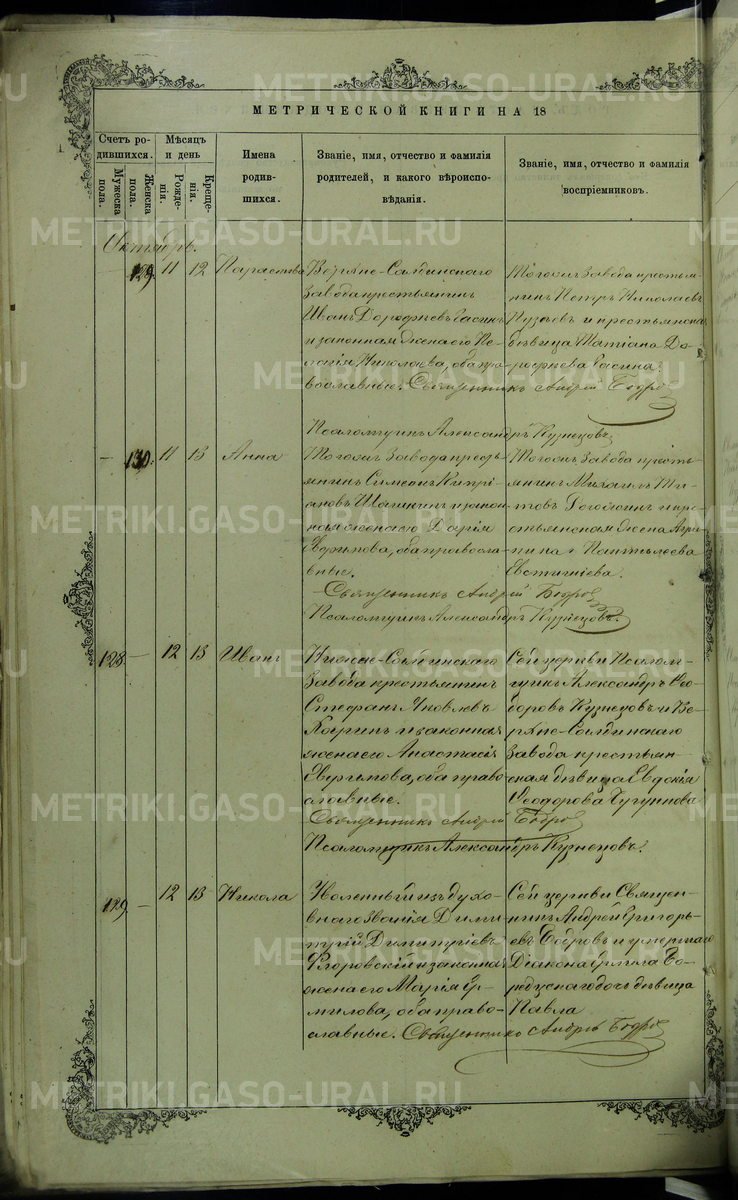 МЕТРИЧЕСКОЙ КНИГИ НА 18
Счетъ ро-
дившихся.
Мужеска
пола.
Женска
пола.
Мѣсяцъ
и день
Рожде-
нія.
Креще-
нія.
Имена
родив-
шихся.
Званіе, имя, отчество и фамилія
родителей, и какого вѣроиспо-
вѣданія.
Званіе, имя, отчество и фамилія
воспріемниковъ.
Октябрь.
129. 11 12 Параскева
Верхне-Салдинскаго
завода крестьянинъ
Иванъ Дорофѣевъ
и законная жена его Пе-
лагія Николаева, оба пра-
вославные. Священникъ Андрей Бодров
Псаломщикъ Александръ Кузнецовъ
Тогожъ завода крестья-
нинъ Петръ Николаевъ
и крестьянская
дѣвица Татіана До-
рофѣева
- 130. 11 13 Анна
Тогожъ завода кресть-
янинъ Симеонъ Кипрі-
ановъ и закон-
ная жена его Дарія
оба правосла-
вные.
Священникъ Андрей Бодров
Псаломщикъ Александръ Кузнецовъ.
Тогожъ завода кресть-
янинъ Михаилъ Ти-
товъ и кре-
стьянская жена Агри-
пина Пантелеева
Евстигнѣева.
128 - 12 13 Иванъ
Нижне-Салдинскаго
завода крестьянинъ
Стефанъ Яковлевъ
и законная
жена его Анастасія
оба право-
славные.
Священникъ Андрей Бодров
Псаломщикъ Александръ Кузнецовъ.
Сей церкви Псалом-
щикъ Александръ Ѳео-
доровъ Кузнецовъ и Ве-
рхне-Салдинскаго
завода крестьян-
ская дѣвица Евдокія
Ѳеодорова Чугунова
129 - 12 13 Никола
изъ духо-
внаго званія Дими-
трій Димитріевъ
Флоровскій и законная
жена его Марія Ер-
милова, оба право-
славные. Священникъ Андрей Бодров
Сей церкви Священ-
никъ Андрей Григорь-
евъ Бодровъ и умершаго
Діакона Ермила
дочь дѣвица
Павла
METRIKI.GASO-URAL.RU